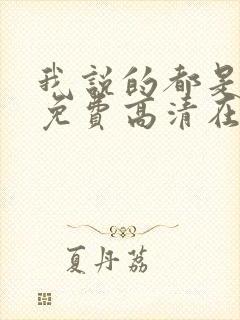 我說的都是
免費高清在
夏丹荔